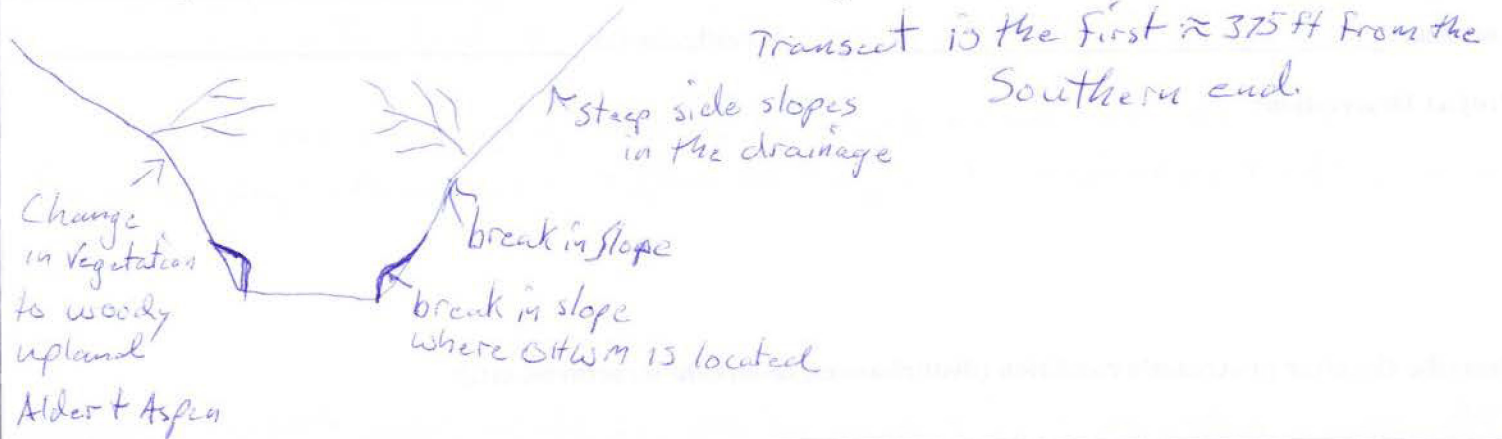 Transect is the first ≈ 375 ft from the
Southern end.
steep side slopes
in the drainage
Change
in Vegetation
to woody
upland
Alder + Aspen
break in slope
break in slope
where OHWM is located